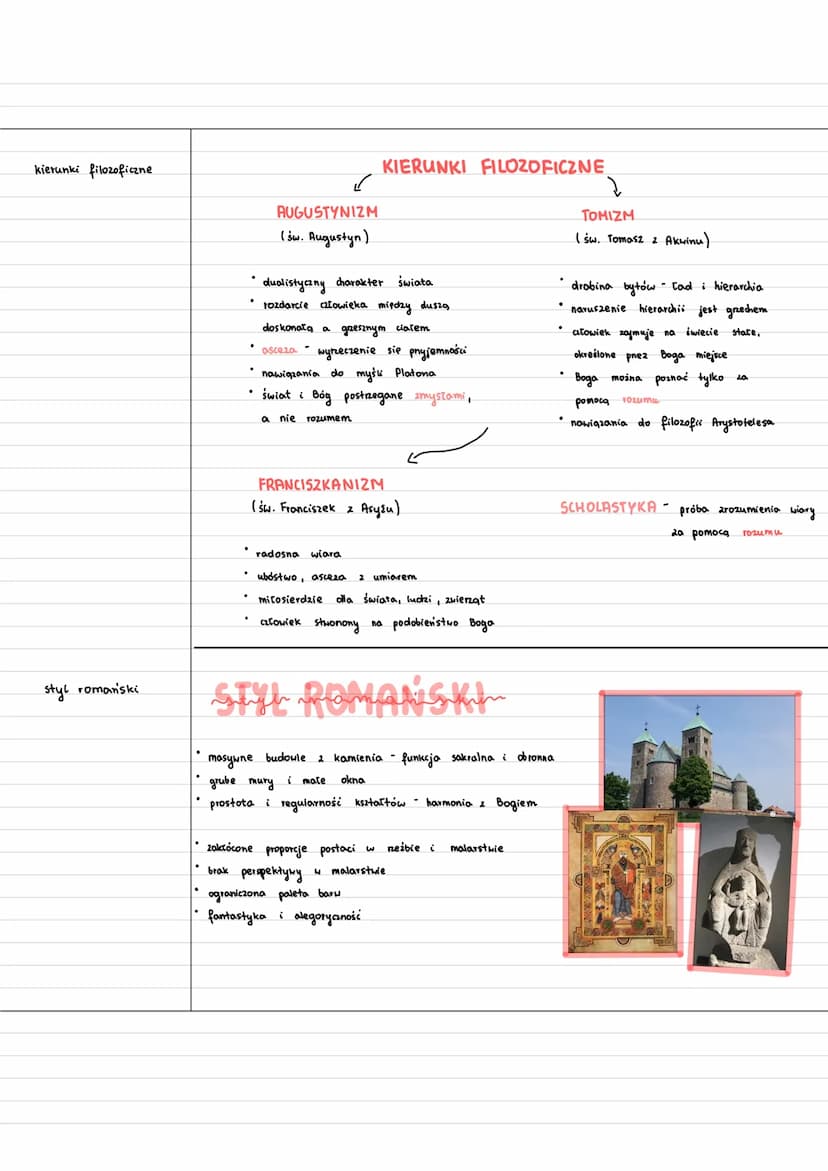 kierunki filozoficzne
KIERUNKI FILOZOFICZNE
AUGUSTYNIZM
(św. Augustyn)
• dualistyczny charakter świata
• rozdarcie człowieka między duszą
doskonałą a grzesznym ciałem
• asceza - wyrzeczenie się przyjemności
• nawiązania do myśli Platona
• świat i Bóg postrzegane zmysłami,
a nie rozumem
TOMIZM
(św. Tomasz z Akwinu)
• drabina bytów - ład i hierarchia
• naruszenie hierarchii jest grzechem
• człowiek zajmuje na świecie stałe,
określone przez Boga miejsce
• Boga można poznać tylko za
pomocą rozumu
• nawiązania do filozofii Arystotelesa
FRANCISZKANIZM
(św. Franciszek z Asyżu)
• radosna wiara
• ubóstwo, asceza z umiarem
• miłosierdzie dla świata, ludzi, zwierząt
• człowiek stworzony na podobieństwo Boga
SCHOLASTYKA - próba zrozumienia wiary
za pomocą rozumu
styl romański
STYL ROMAŃSKI
styl romański
• masywne budowle z kamienia - funkcja sakralna i obronna
• grube mury i małe okna
• prostota i regularność kształtów - harmonia z Bogiem
• zakłócone proporcje postaci w rzeźbie i malarstwie
• brak perspektywy w malarstwie
• ograniczona paleta barw
• fantastyka i alegoryczność